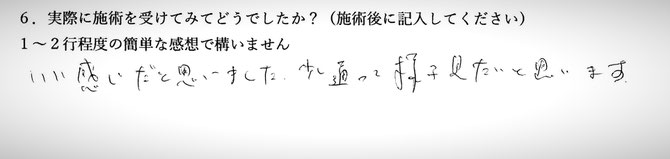 6．実際に施術を受けてみてどうでしたか？（施術後に記入してください）
1～2行程度の簡単な感想で構いません
いい感じだと思いました．少し通って様子見たいと思います．